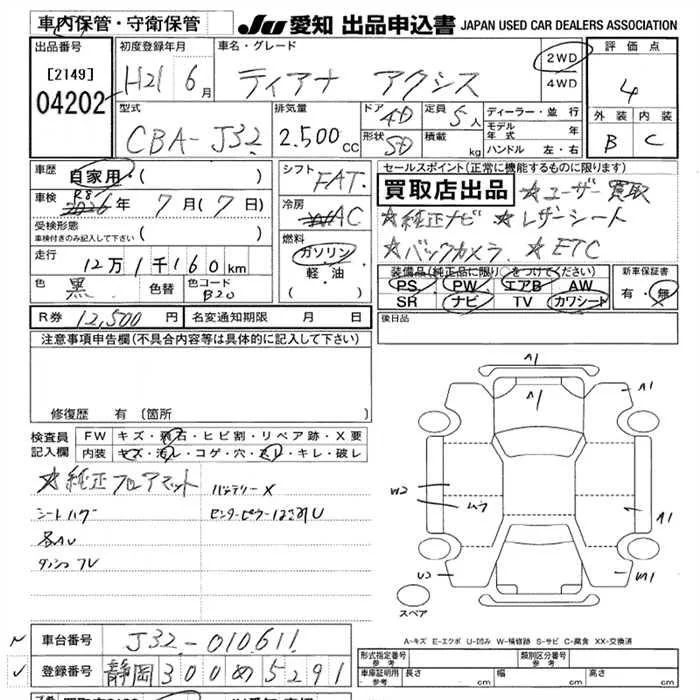 車内保管・守衛保管
JU 愛知 出品申込書 JAPAN USED CAR DEALERS ASSOCIATION
出品番号 初度登録年月 車名・グレード 評価点
[2149] 04202
H21 6月 ティアナ アクシス 2WD 4WD 4
型式 排気量 ドア 4D 定員 5人 ディーラー・並行 外装 内装
CBA-J32 2.500cc 形状 SD 積載 kg モデル年式 年 ハンドル 左・右 B C
車歴 自家用・( )
シフト FAT
セールスポイント(正常に機能するものに限ります)
車検 R8 2026年 7月(7日)
冷房 WAC
買取店出品 ☆ユーザー買取
受検形態 車検付きのみ記入して下さい ( )
☆純正ナビ ☆レザーシート
燃料 ガソリン・軽油・( )
☆バックカメラ ☆ETC
走行 12万1千160km
装備品(純正品に限り○をつけてください) 新車保証書
色 黒 色替 色コード B20
PS PW エアB AW 有・無
SR ナビ TV カワシート
R券 12,500円 名変通知期限 月 日
後日品
注意事項申告欄(不具合内容等は具体的に記入して下さい)
修復歴 有 [箇所
検査員記入欄 FW キズ・飛石・ヒビ割・リペア跡・X要
内装 キズ・汚レ・コゲ・穴・スレ・キレ・破レ
☆純正フロアマット バッテリーX
シートハゲ
各AU
A1 A1 A1 W2 A1 U2 W1
スペア
A-キズ E-エクボ U-凹み W-補修跡 S-サビ C-腐食 XX-交換済
車台番号 J32-010611
登録番号 静岡 300 め 5291
形式指定番号 参考 類別区分番号 参考
車庫証明用 参考 長さ cm 幅 cm 高さ cm